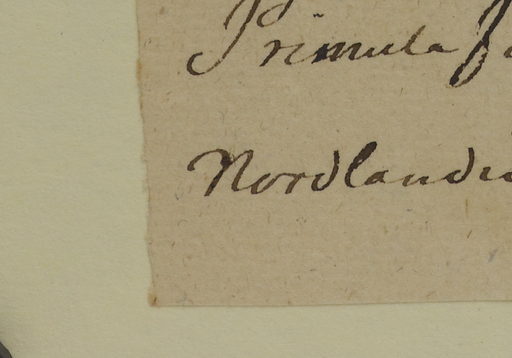 Primula
Nordlandi